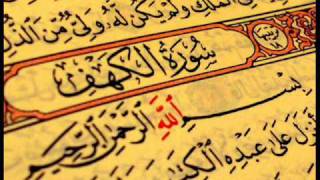 الملك ولم يكن له ولي من الذل
سورة الكهف
بسم الله الرحمن الرحيم
أنزل على عبده الكتٰب